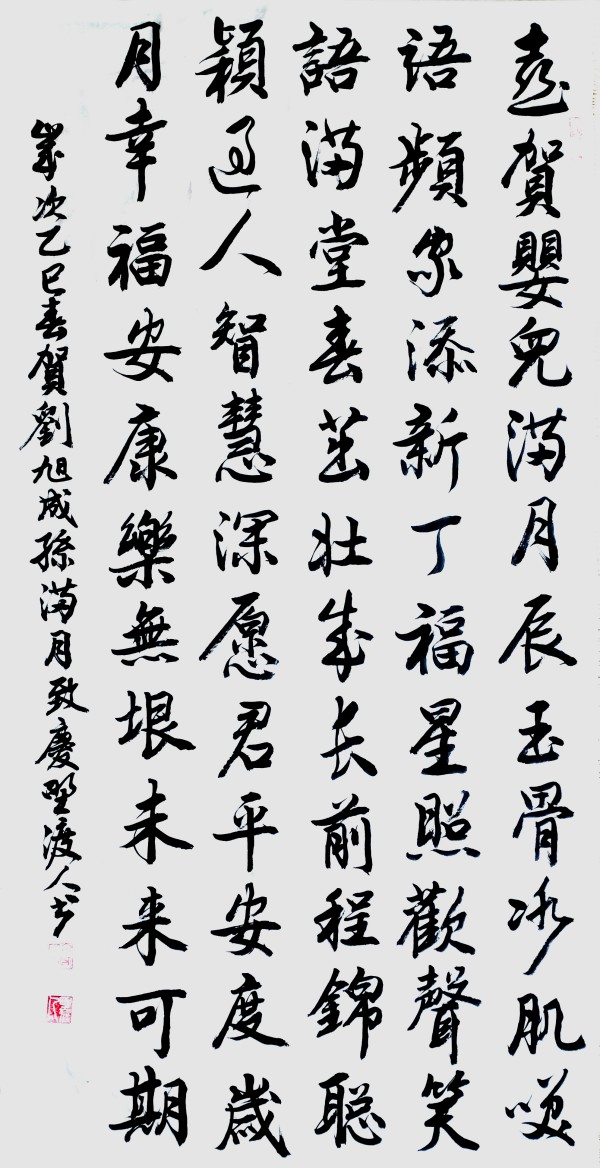 喜賀嬰兒滿月辰玉骨冰肌咲
語頻家添新丁福星照歡聲笑
語滿堂春茁壯成长前程錦聪
穎過人智慧深愿君平安度歲
月幸福安康樂無垠未来可期
歲次乙巳春賀劉旭成孫滿月致慶野渡人书